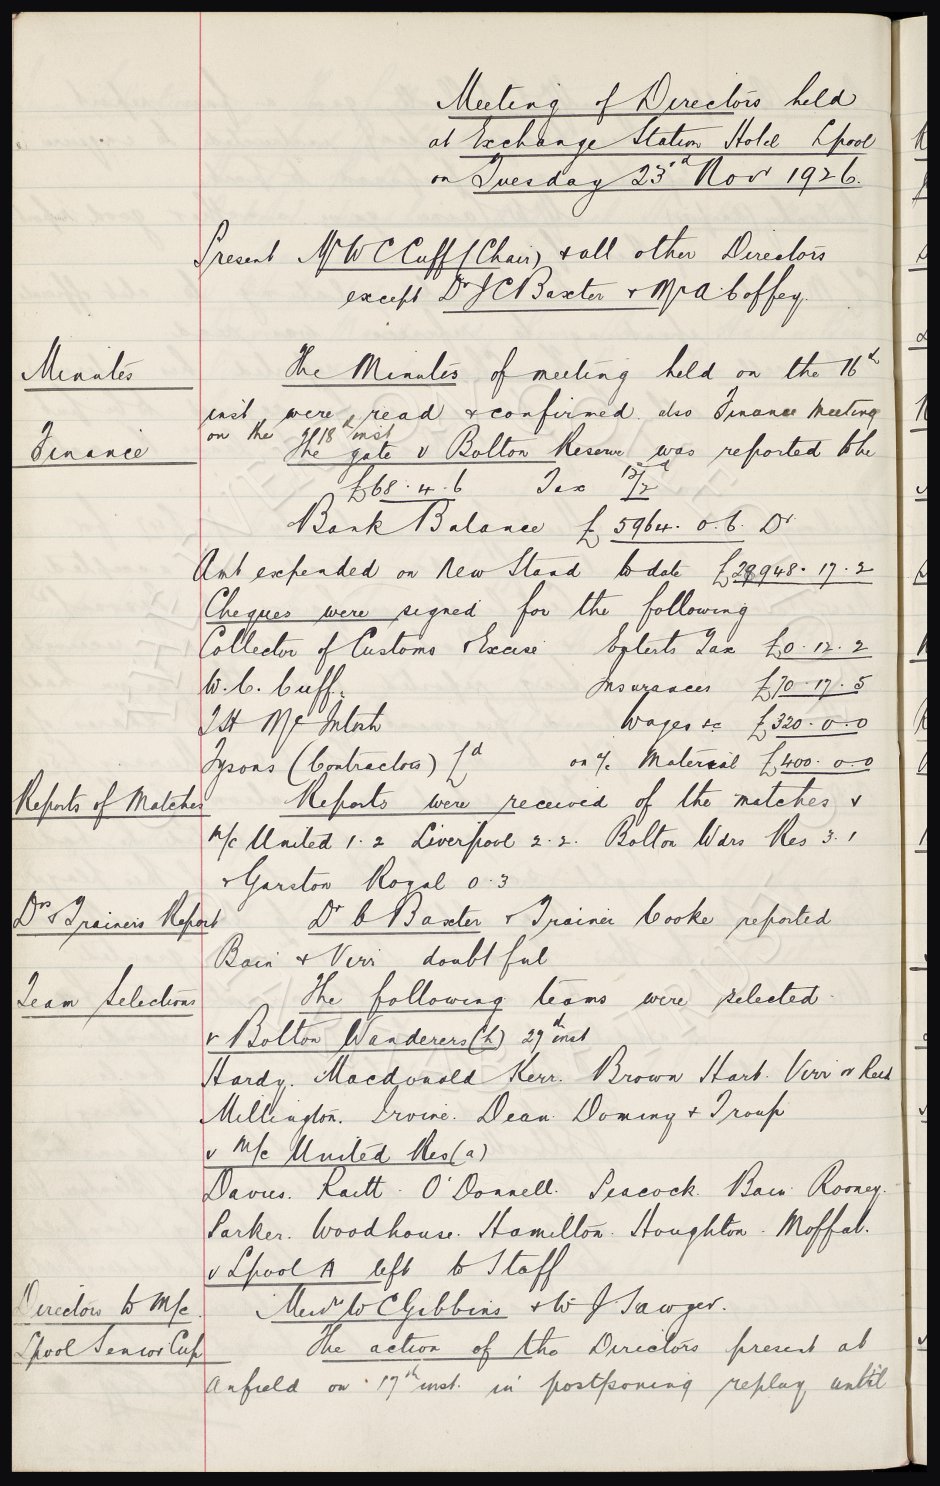 Meeting of Directors held
at Exchange Station Hotel Lpool
on Tuesday 23rd Nov 1926.
Present Mr W C Cuff (Chair) & all other Directors
except Dr J C Baxter & Mr A. Coffey.
Minutes The Minutes of meeting held on the 16th
inst were read & confirmed. also Finance Meeting
on the 18th inst
Finance The gate v Bolton Reserve was reported to be
£68. 4. 6 Tax 12/2d
Bank Balance £5964. 0. 6. Dr
Amt expended on New Stand to date £28948. 17. 2
Cheques were signed for the following
Collector of Customs & Excise Enterts Tax £0. 12. 2
W. C. Cuff. Insurances £70. 17. 5
T H Mc Intosh Wages &c £320. 0. 0
Tysons (Contractors) Ld on a/c Material £400. 0. 0
Reports of Matches Reports were received of the matches v
M/c United 1. 2 Liverpool 2. 2. Bolton Wdrs Res 3. 1
& Garston Royal 0. 3
Drs & Trainers Report Dr C Baxter & Trainer Cooke reported
Bain & Virr doubtful
Team Selections The following teams were selected.
v Bolton Wanderers (h) 27th inst
Hardy. Macdonald Kerr. Brown Hart. Virr or Reid
Millington. Irvine. Dean. Dominy & Troup
v M/c United Res (a)
Davies. Raitt. O'Donnell. Peacock. Bain. Rooney.
Parker. Woodhouse. Hamilton. Houghton. Moffat.
v Lpool A left to Staff
Directors to M/c. Messrs W C Gibbins & W J Sawyer.
Lpool Senior Cup The action of the Directors present at
Anfield on 17th inst. in postponing replay until